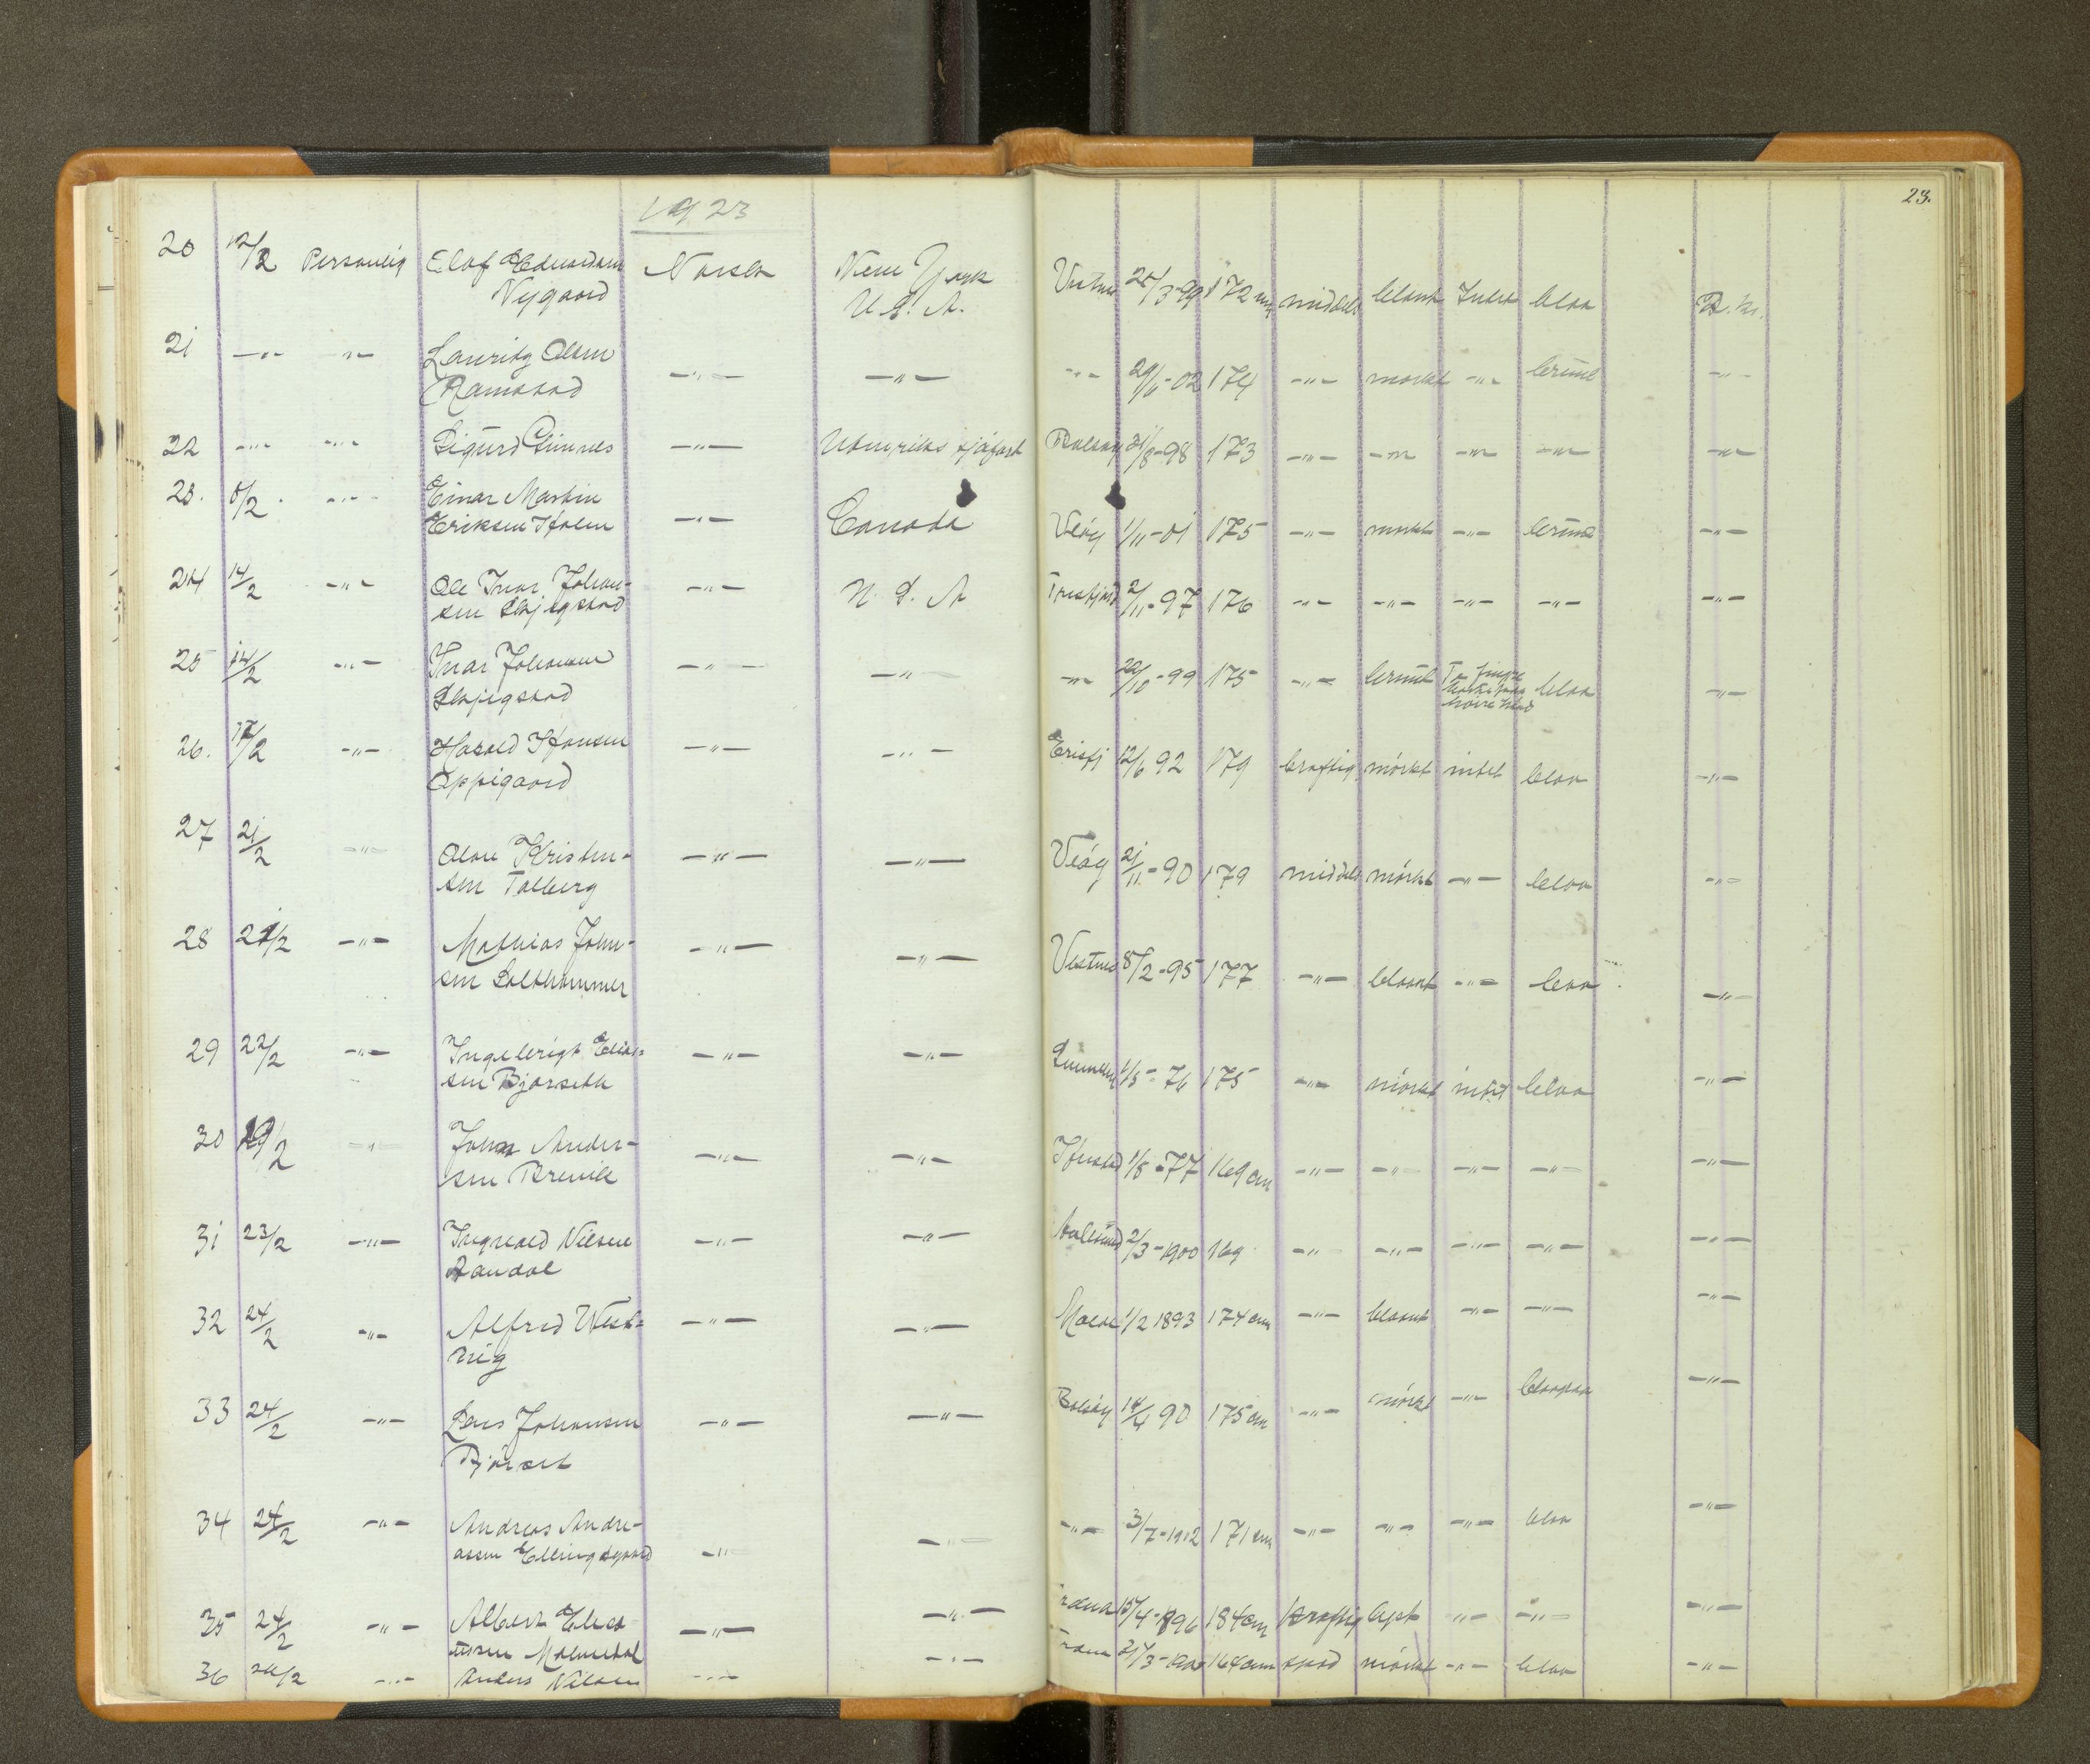 1923
23.
20 12/2 Personlig Olaf Edvardsen Norsk New York 25/3-99 172 cm middels blondt Intet blaa
Nygaard U.S.A.
21 -"- -"- Lauritz Olsen -"- -"- -"- 29/11-02 174 -"- mørkt -"- brune -"-
Ramstad
22 -"- -"- Sigurd Gimnes -"- Utenriks sjøfart Bolsøy 31/8-98 173 -"- -"- -"- -"- -"-
23. 5/2 -"- Einar Martin -"- Canada Veøy 1/11-01 175 -"- mørkt -"- brune -"-
Eriksen Holm
24 14/2 -"- Ole Ivar Johan- -"- U.S.A Tresfjord 2/11-97 176 -"- -"- -"- -"- -"-
sen Skjegstad
25 14/2 -"- Ivar Johansen -"- -"- -"- 22/10-99 175 -"- brunt To fingre blaa -"-
Skjegstad
26. 17/2 -"- Harald Hansen -"- -"- Erisfj 12/6 92 179 kraftig mørkt intet blaa -"-
Oppigaard
27 21/2 -"- Olav Kristen- -"- -"- Veøy 21/11-90 179 middels mørkt -"- blaa -"-
sen Talberg
28 21/2 -"- Mathias John- -"- -"- Vestnes 8/2-95 177 -"- blondt -"- blaa -"-
sen Salthammer
29 22/2 -"- Ingebrigt Elias- -"- -"- 1/5-76 175 -"- mørkt intet blaa -"-
sen Bjørseth
30 19/2 -"- John Ander- -"- -"- 1/8-77 169 cm -"- -"- -"- -"- -"-
sen Brevik
31 23/2 -"- Ingvald Nilsen -"- -"- Aalesund 2/3-1900 169 -"- -"- -"- -"- -"-
Aandal
32 24/2 -"- Alfred West- -"- -"- Molde 1/2 1893 174 cm -"- blondt -"- -"- -"-
vig
33 24/2 -"- Lars Johansen -"- -"- Bolsøy 14/4 90 175 cm -"- mørkt -"- blaagraa -"-
Bjørset
34 24/2 -"- Andreas Andre- -"- -"- -"- 3/7-1902 171 cm -"- -"- -"- blaa -"-
assen Ellingsgaard
35 24/2 -"- Albert -"- -"- Fræna 15/4-1896 184 cm kraftig lyst -"- -"- -"-
Malmedal
36 24/2 -"- Anders Nilsen -"- -"- Fræna 21/3-1900 164 cm spæd mørkt -"- blaa -"-